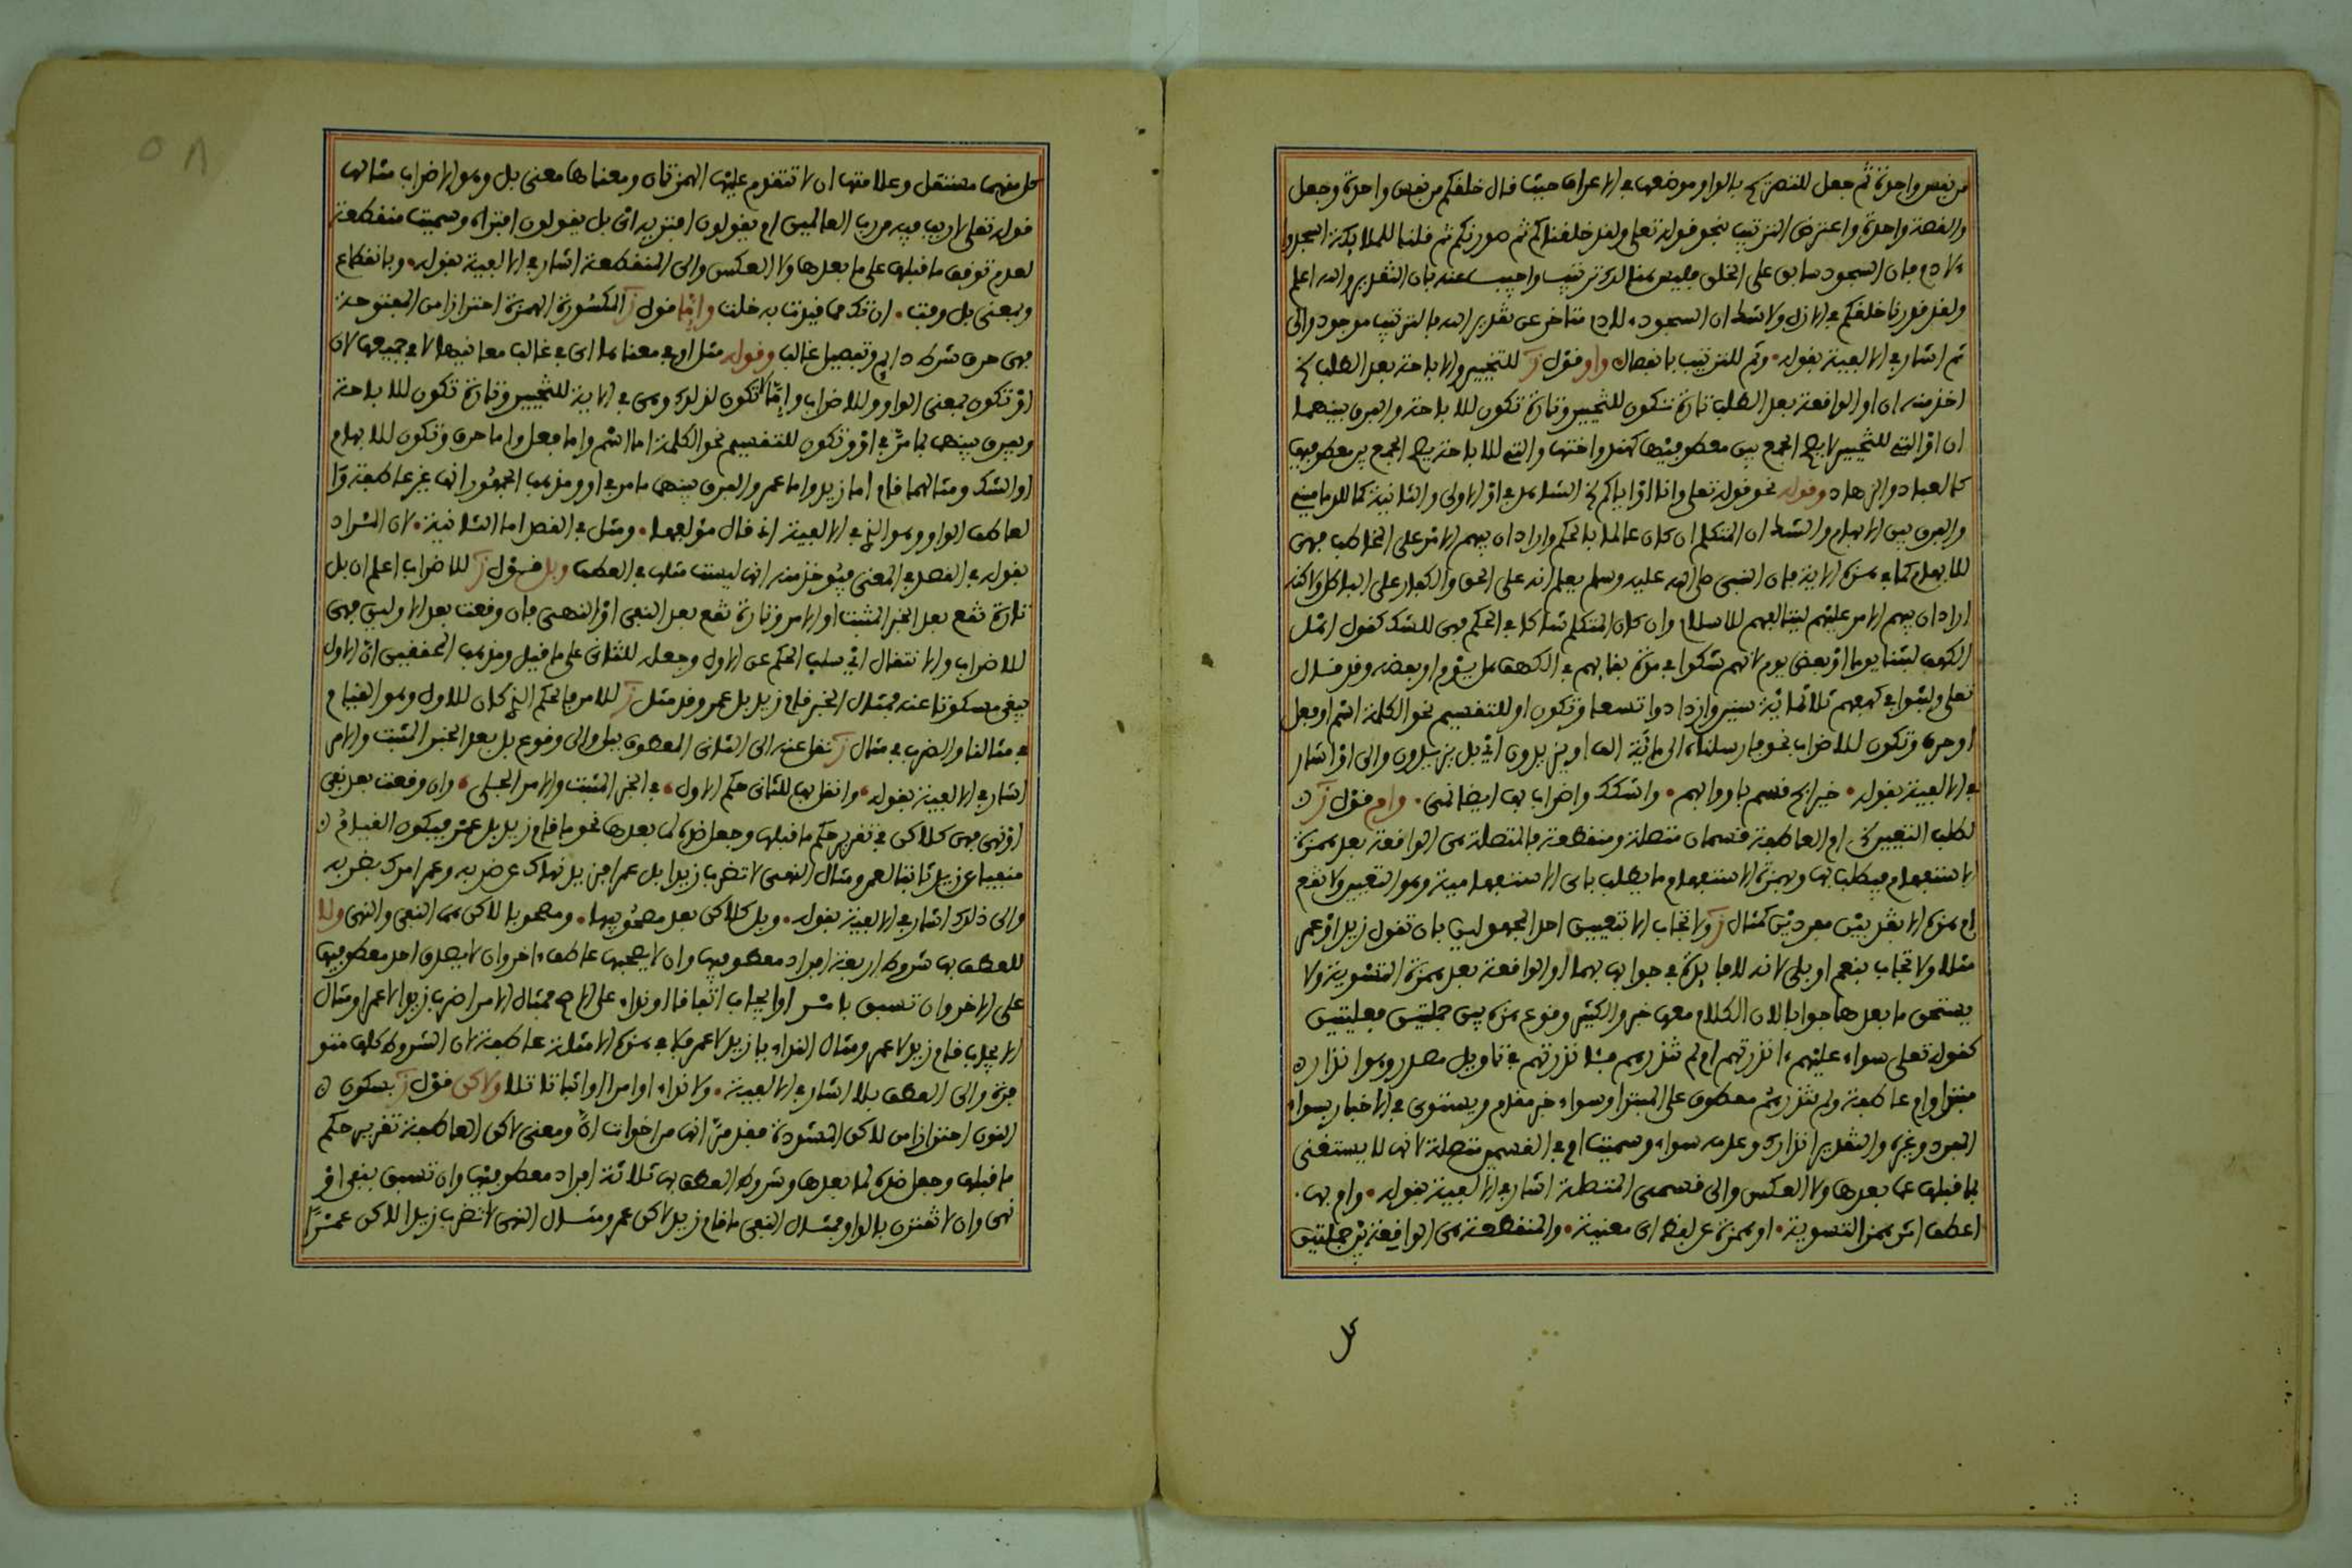 من نفس واحدة ثم جعل للتصريح بالواو موضعها في الاعراف حيث قال خلقكم من نفس واحدة وجعل
والقصة واحدة واعترض الترتيب بنحو قوله تعلى ولقد خلقناكم ثم صورناكم ثم قلنا للملايكة اسجدوا
لادم فان السجود سابق على الخلق فليس هنالك ترتيب واجيب عنه بان التقدير والله اعلم
ولقد قدرنا خلقكم في الازل ولا شك ان السجود لادم متاخر عن تقدير الله فالترتيب موجود والى
ثم اشار في الالفية بقوله وثم للترتيب بانفصال واو قول ز للتخيير والاباحة بعد الطلب الخ
اخذ منه ان او الواقعة بعد الطلب تارة تكون للتخيير وتارة تكون للاباحة والفرق بينهما
ان او التي للتخيير لا يصح الجمع بين معطوفيها كهند واختها والتي للاباحة يصح الجمع بين معطوفيها
كالعباد والزهاد وقوله نحو قوله تعلى وانا او اياكم الخ الشاهد في او الاولى والثانية كما للدماميني
والفرق بين الابهام والشك ان المتكلم ان كان عالما بالحكم واراد ان يبهم الامر على المخاطب فهي
للابهام كما في هذه الاية فان النبي صلى الله عليه وسلم يعلم انه على الحق والكفار على الباطل ولاكنه
اراد ان يبهم الامر عليهم ليتالفهم للاسلام وان كان المتكلم شاكا في الحكم فهي للشك كقول اهل
الكهف لبثنا يوما او بعض يوم لانهم شكوا في مدة بقايهم في الكهف هل يوم او بعضه وقد قال
تعلى ولبثوا في كهفهم ثلاثماية سنين وازدادوا تسعا وتكون او للتقسيم نحو الكلمة اسم او فعل
او حرف وتكون للاضراب نحو وارسلناه الى مائة الف او يزيدون اي بل يزيدون والى او اشار
في الالفية بقوله خير ابح قسم باو وابهم واشكك واضراب بها ايضا نمي وام قول ز
لطلب التعيين الخ ام العاطفة قسمان متصلة ومنقطعة فالمتصلة هي الواقعة بعد همزة
الاستفهام فيطلب بها وبهمزة الاستفهام ما يطلب باي الاستفهامية وهو التعيين ولا تقع
ام هذه الا بين مفردين كمثال ز ولا تجاب الا بتعيين احد المجهولين بان تقول زيد او عمر
مثلا ولا تجاب بنعم او بلى لانه لا فايدة في جوابها بهما او الواقعة بعد همزة التسوية ولا
يستحق ما بعدها جوابا لان الكلام معها خبر والكثير وقوع هذه بين جملتين فعليتين
كقوله تعلى سواء عليهم ءانذرتهم ام لم تنذرهم فانذرتهم في تاويل مصدر وهو انذارك
مبتدا وام عاطفة ولم تنذرهم معطوف على المبتدا وسواء خبر مقدم ويستوي في الاخبار بسواء
المفرد وغيره والتقدير انذارك وعدمه سواء وسميت ام في القسمين متصلة لانها لا يستغنى
بما قبلها عما بعدها ولا العكس والى قسمي المتصلة اشار في الالفية بقوله وام بها
اعطف اثر همز التسوية او همزة عن لفظ اي مغنية والمنقطعة هي الواقعة بين جملتين
كل
كل منهما مستقل وعلامتها ان لا تتقدم عليها الهمزتان ومعناها معنى بل وهو الاضراب مثالها
قوله تعلى لا ريب فيه من رب العالمين ام يقولون افتريه اي بل يقولون افتراه وسميت منقطعة
لعدم توقف ما قبلها على ما بعدها ولا العكس والى المنقطعة اشار في الالفية بقوله وبانقطاع
وبمعنى بل وفت ان تك مما قيدت به خلت واما قول ز المكسورة الهمزة احترازا من المفتوحة
فهي حرف شرط دايم وتفصيل غالب وقوله مثل او في معناها اي في غالب معانيها لا في جميعها لان
او تكون بمعنى الواو وللاضراب واما لا تكون لذلك وهي في الاية للتخيير وتارة تكون للاباحة
ويفرق بينهما بما مر في او وتكون للتقسيم نحو الكلمة اما اسم واما فعل واما حرف وتكون للابهام
او الشك ومثالهما قام اما زيد واما عمر والفرق بينهما ما مر في او ومذهب الجمهور انها غير عاطفة وا
لعاطف الواو وهو الذي في الالفية اذ قال مولفها ومثل او في القصد اما الثانية لان المراد
بقوله في القصد في المعنى فيوخذ منه انها ليست مثلها في العطف وبل قول ز للاضراب اعلم ان بل
تارة تقع بعد الخبر المثبت او الامر وتارة تقع بعد النفي او النهي فان وقعت بعد الاولين فهي
للاضراب والانتقال اي سلب الحكم عن الاول وجعله للثاني على ما قيل ومذهب المحققين ان الاول
يبقى مسكوتا عنه فمثال الخبر قام زيد بل عمر وقد مثل ز للامر فالحكم الذي كان للاول وهو القيام
في مثالنا والضرب في مثال ز نقل عنه الى الثاني المعطوف ببل والى وقوع بل بعد الخبر المثبت والامر
اشار في الالفية بقوله وانقل بها للثاني حكم الاول في الخبر المثبت والامر الجلي وان وقعت بعد نفي
او نهي فهي كلاكن في تقرير حكم ما قبلها وجعل ضده لما بعدها نحو ما قام زيد بل عمر فيكون القيام
منفيا عن زيد ثابتا لعمر ومثال النهي لا تضرب زيدا بل عمرا فزيد نهاك عن ضربه وعمر امرك بضربه
والى ذلك اشار في الالفية بقوله وبل كلاكن بعد مصحوبيها ومصحوبا لاكن هما النفي والنهي ولا
للعطف بها شروط اربعة افراد معطوفيها وان لا يصحبها عاطف ءاخر وان لا يصدق احد معطوفيها
على الاخر وان تسبق بامر او ايجاب اتفاقا او نداء على الاصح فمثال الامر اضرب زيدا لا عمرا ومثال
الايجاب قام زيد لا عمر ومثال النداء يا زيد لا عمر فلا في هذه الامثلة عاطفة لان الشروط كلها متو
فرة والى العطف بلا اشار في الالفية ولا نداء او امرا او اثباتا تلا ولاكن قول ز بسكون
النون احترازا من لاكن المشددة فقد مر انها من اخوات ان ومعنى لاكن العاطفة تقرير حكم
ما قبلها وجعل ضده لما بعدها وشروط العطف بها ثلاثة افراد معطوفيها وان تسبق بنفي او
نهي وان لا تقترن بالواو فمثال النفي ما قام زيد لاكن عمر ومثال النهي لا تضرب زيدا لاكن عمرا
٥٨